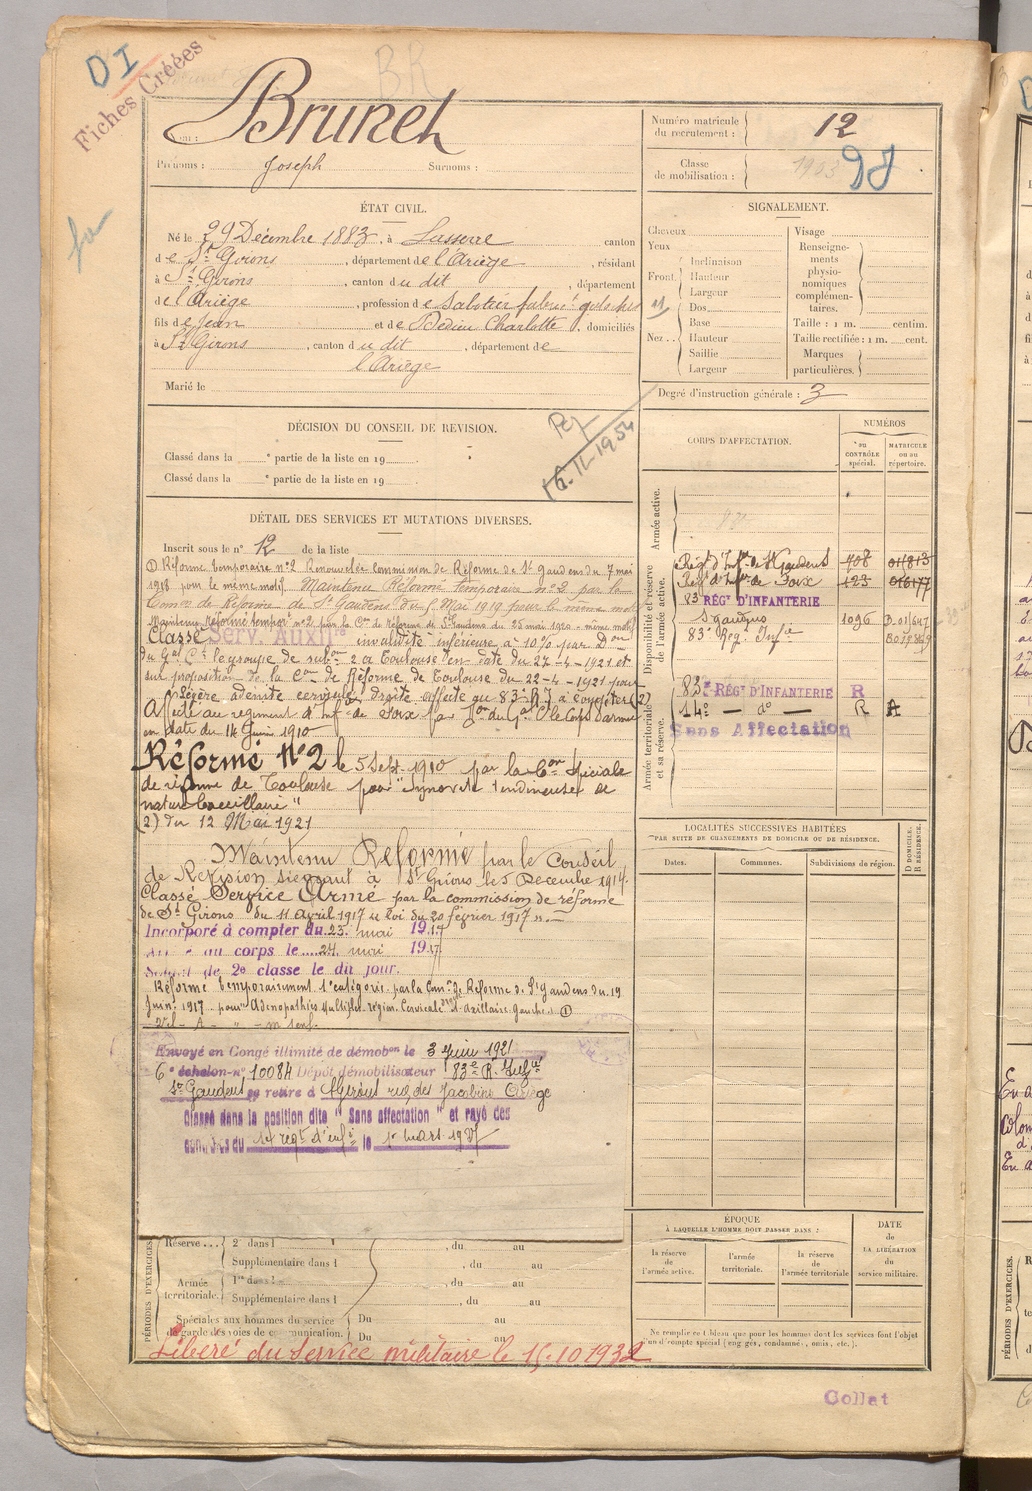 DI
Fiches Créées
BR
Nom : Brunet
Prénoms : Joseph Surnoms :
Numéro matricule du recrutement : 12
Classe de mobilisation : 1903
ÉTAT CIVIL.
Né le 29 Décembre 1883, à Lasserre canton
de St Girons, département de l'Ariège, résidant
à St Girons, canton du dit, département
de l'Ariège, profession de Sabotier fabric. galoches
fils de Jean et de Dedieu Charlotte, domiciliés
à St Girons, canton du dit, département de
l'Ariège
Marié le
SIGNALEMENT.
Cheveux
Yeux
Front
Inclinaison
Hauteur
Largeur
Nez
Dos
Base
Hauteur
Saillie
Largeur
Visage
Renseignements physionomiques complémentaires.
Taille : 1 m. centim.
Taille rectifiée : 1 m. cent.
Marques particulières.
Degré d'instruction générale : 3
DÉCISION DU CONSEIL DE REVISION.
Classé dans la e partie de la liste en 19
Classé dans la e partie de la liste en 19
16.11.1954
DÉTAIL DES SERVICES ET MUTATIONS DIVERSES.
Inscrit sous le n° 12 de la liste
① Réforme temporaire n°2 Renouvelée commission de Réforme de St Gaudens du 7 mai
1918 pour le même motif. Maintenu Réformé temporaire n°2 par la
Comon de Réforme de St Gaudens du 5 Mai 1919 pour le même motif
Maintenu réformé tempor n°2 par la Con de réforme de St Gaudens du 25 mai 1920 - même motif
Classé Serv. Auxilre invalidité inférieure à 10% par Don
du Gal Ct le groupe de subon 2 à Toulouse en date du 27-4-1921 et
sur proposition de la Con de Réforme de Toulouse du 22-4-1921 pour
Légère adénite cervicale droite. Affecté au 83e R I à compter (2)
Affecté au régiment d'Infie de Foix par Don du Gal Ct le Corps d'armée
en date du 14 Juin 1910
Réformé N°2 le 5 Sept. 1910 par la Con Spéciale
de réforme de Toulouse pour "synovite tendineuse de
nature bacillaire"
(2) du 12 Mai 1921
Maintenu Réformé par le Conseil
de Révision siégeant à St Girons le 5 Décembre 1914.
Classé Service Armé par la commission de réforme
de St Girons du 11 Avril 1917 "loi du 20 février 1917".
Incorporé à compter du 23 mai 1917
au corps le 24 mai 1917
Soldat de 2e classe le dit jour.
Réformé temporairement 1e catégorie par la Comn de Réforme de St Gaudens du 19
Juin 1917 pour "Adénopathies multiples région Cervicale droite et axillaire Gauche." ①
Envoyé en Congé illimité de démobon le 3 Juin 1921
6e échelon n° 10084 Dépôt démobilisateur 83e R. Infie
St Gaudens se retire à St Girons rue des Jacobins Ariège
Classé dans la position dite "Sans affectation" et rayé des
contrôles du 14 régt d'infie le 1er mars 1927
CORPS D'AFFECTATION.
NUMÉROS
DU CONTRÔLE spécial.
MATRICULE ou au répertoire.
Armée active.
Disponibilité et réserve de l'armée active.
Régt d'Infie de St Gaudens 708 01813
Régt d'Infie de Foix 123 016177
83e RÉGt D'INFANTERIE
St Gaudens 1096
83e Rég. Infie
Armée territoriale et sa réserve.
83e RÉGt D'INFANTERIE R
14e — do — R A
Sans Affectation
LOCALITÉS SUCCESSIVES HABITÉES
PAR SUITE DE CHANGEMENTS DE DOMICILE OU DE RÉSIDENCE.
Dates. Communes. Subdivisions du région.
D DOMICILE. R RÉSIDENCE.
ÉPOQUE
À LAQUELLE L'HOMME DOIT PASSER DANS :
la réserve de l'armée active.
l'armée territoriale.
la réserve de l'armée territoriale
DATE de LA LIBÉRATION du service militaire.
PÉRIODES D'EXERCICES.
Réserve... 2e dans l , du au
Supplémentaire dans l , du au
Armée territoriale. 1re dans l , du au
Supplémentaire dans l , du au
Spéciales aux hommes du service de garde des voies de communication. Du au
Du au
Ne remplir ce tableau que pour les hommes dont les services font l'objet
d'un décompte spécial (engagés, condamnés, omis, etc.).
Libéré du service militaire le 15.10.1932
Collat